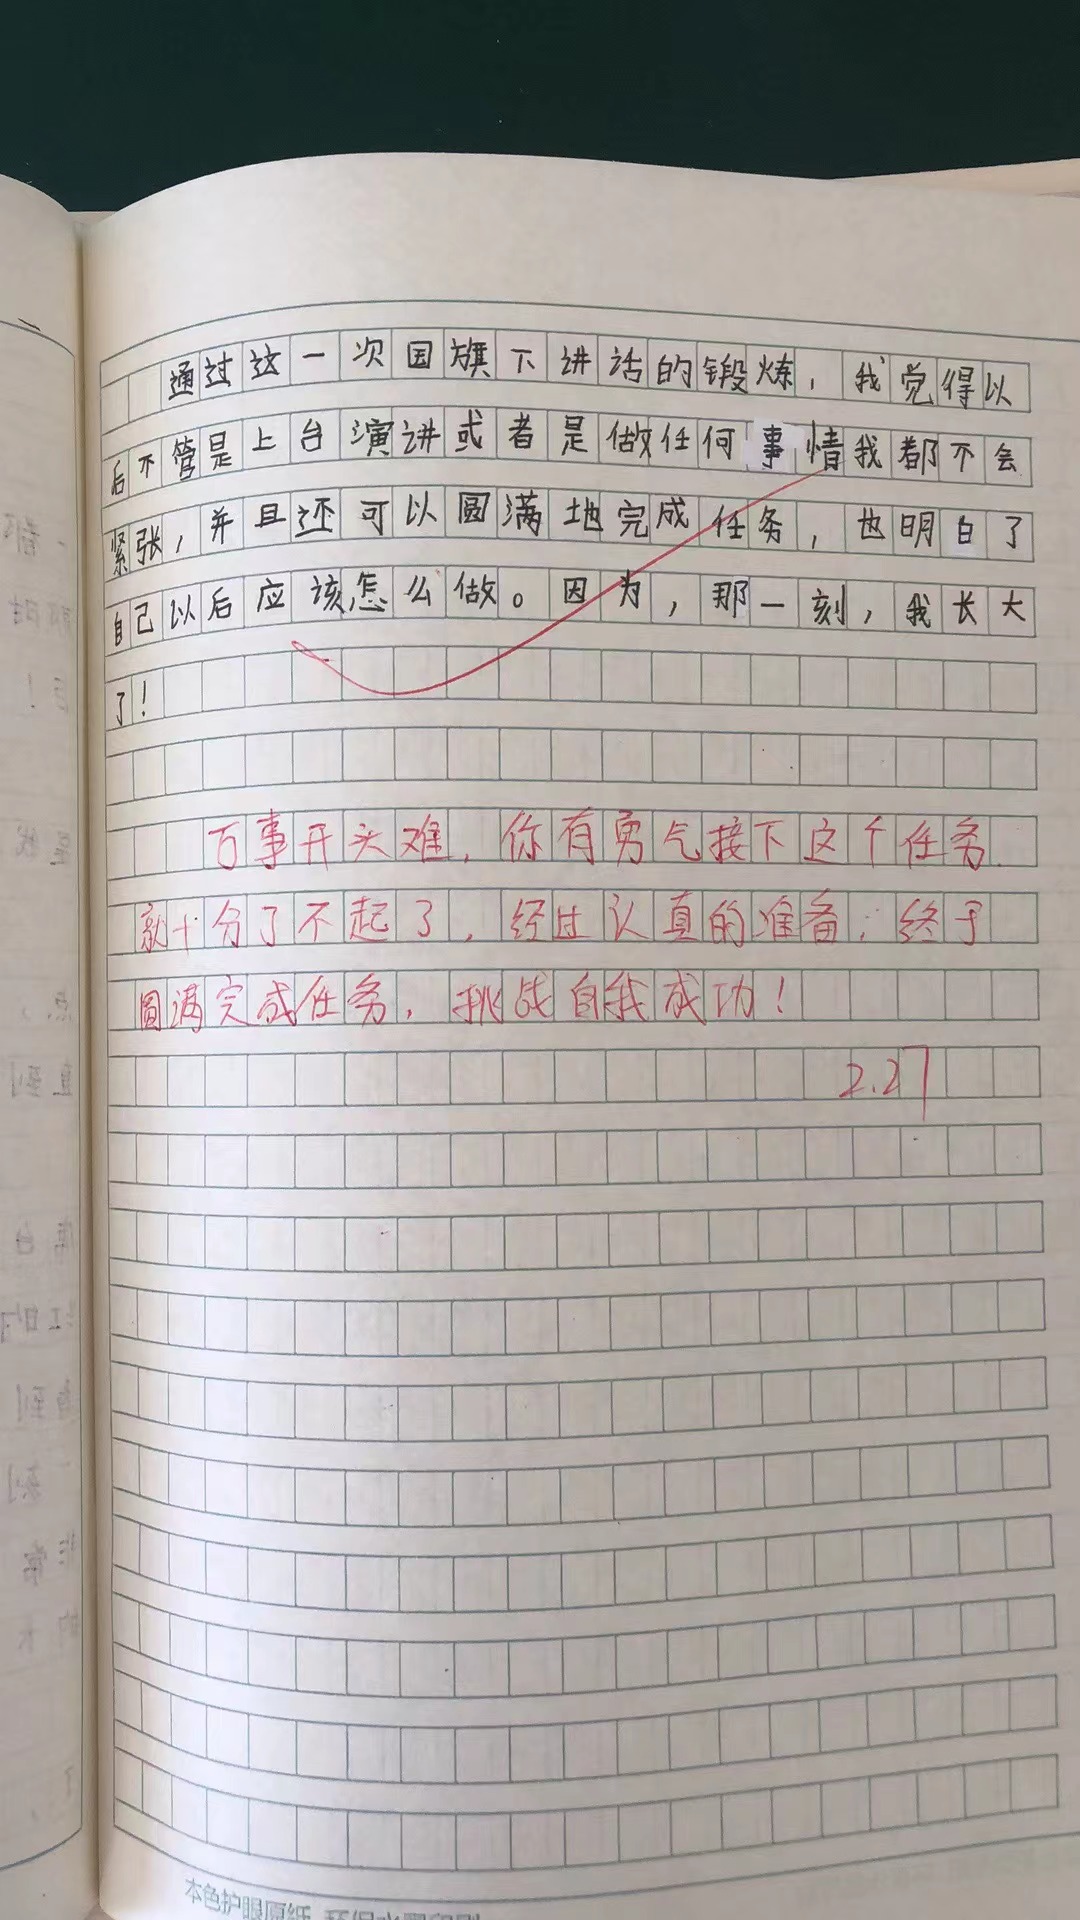 通过这一次国旗下讲话的锻炼，我觉得以
后不管是上台演讲或者是做任何事情我都不会
紧张，并且还可以圆满地完成任务，也明白了
自己以后应该怎么做。因为，那一刻，我长大
了！
万事开头难，你有勇气接下这个任务
就十分了不起了，经过认真的准备，终于
圆满完成任务，挑战自我成功！
2.27
本色护眼原纸